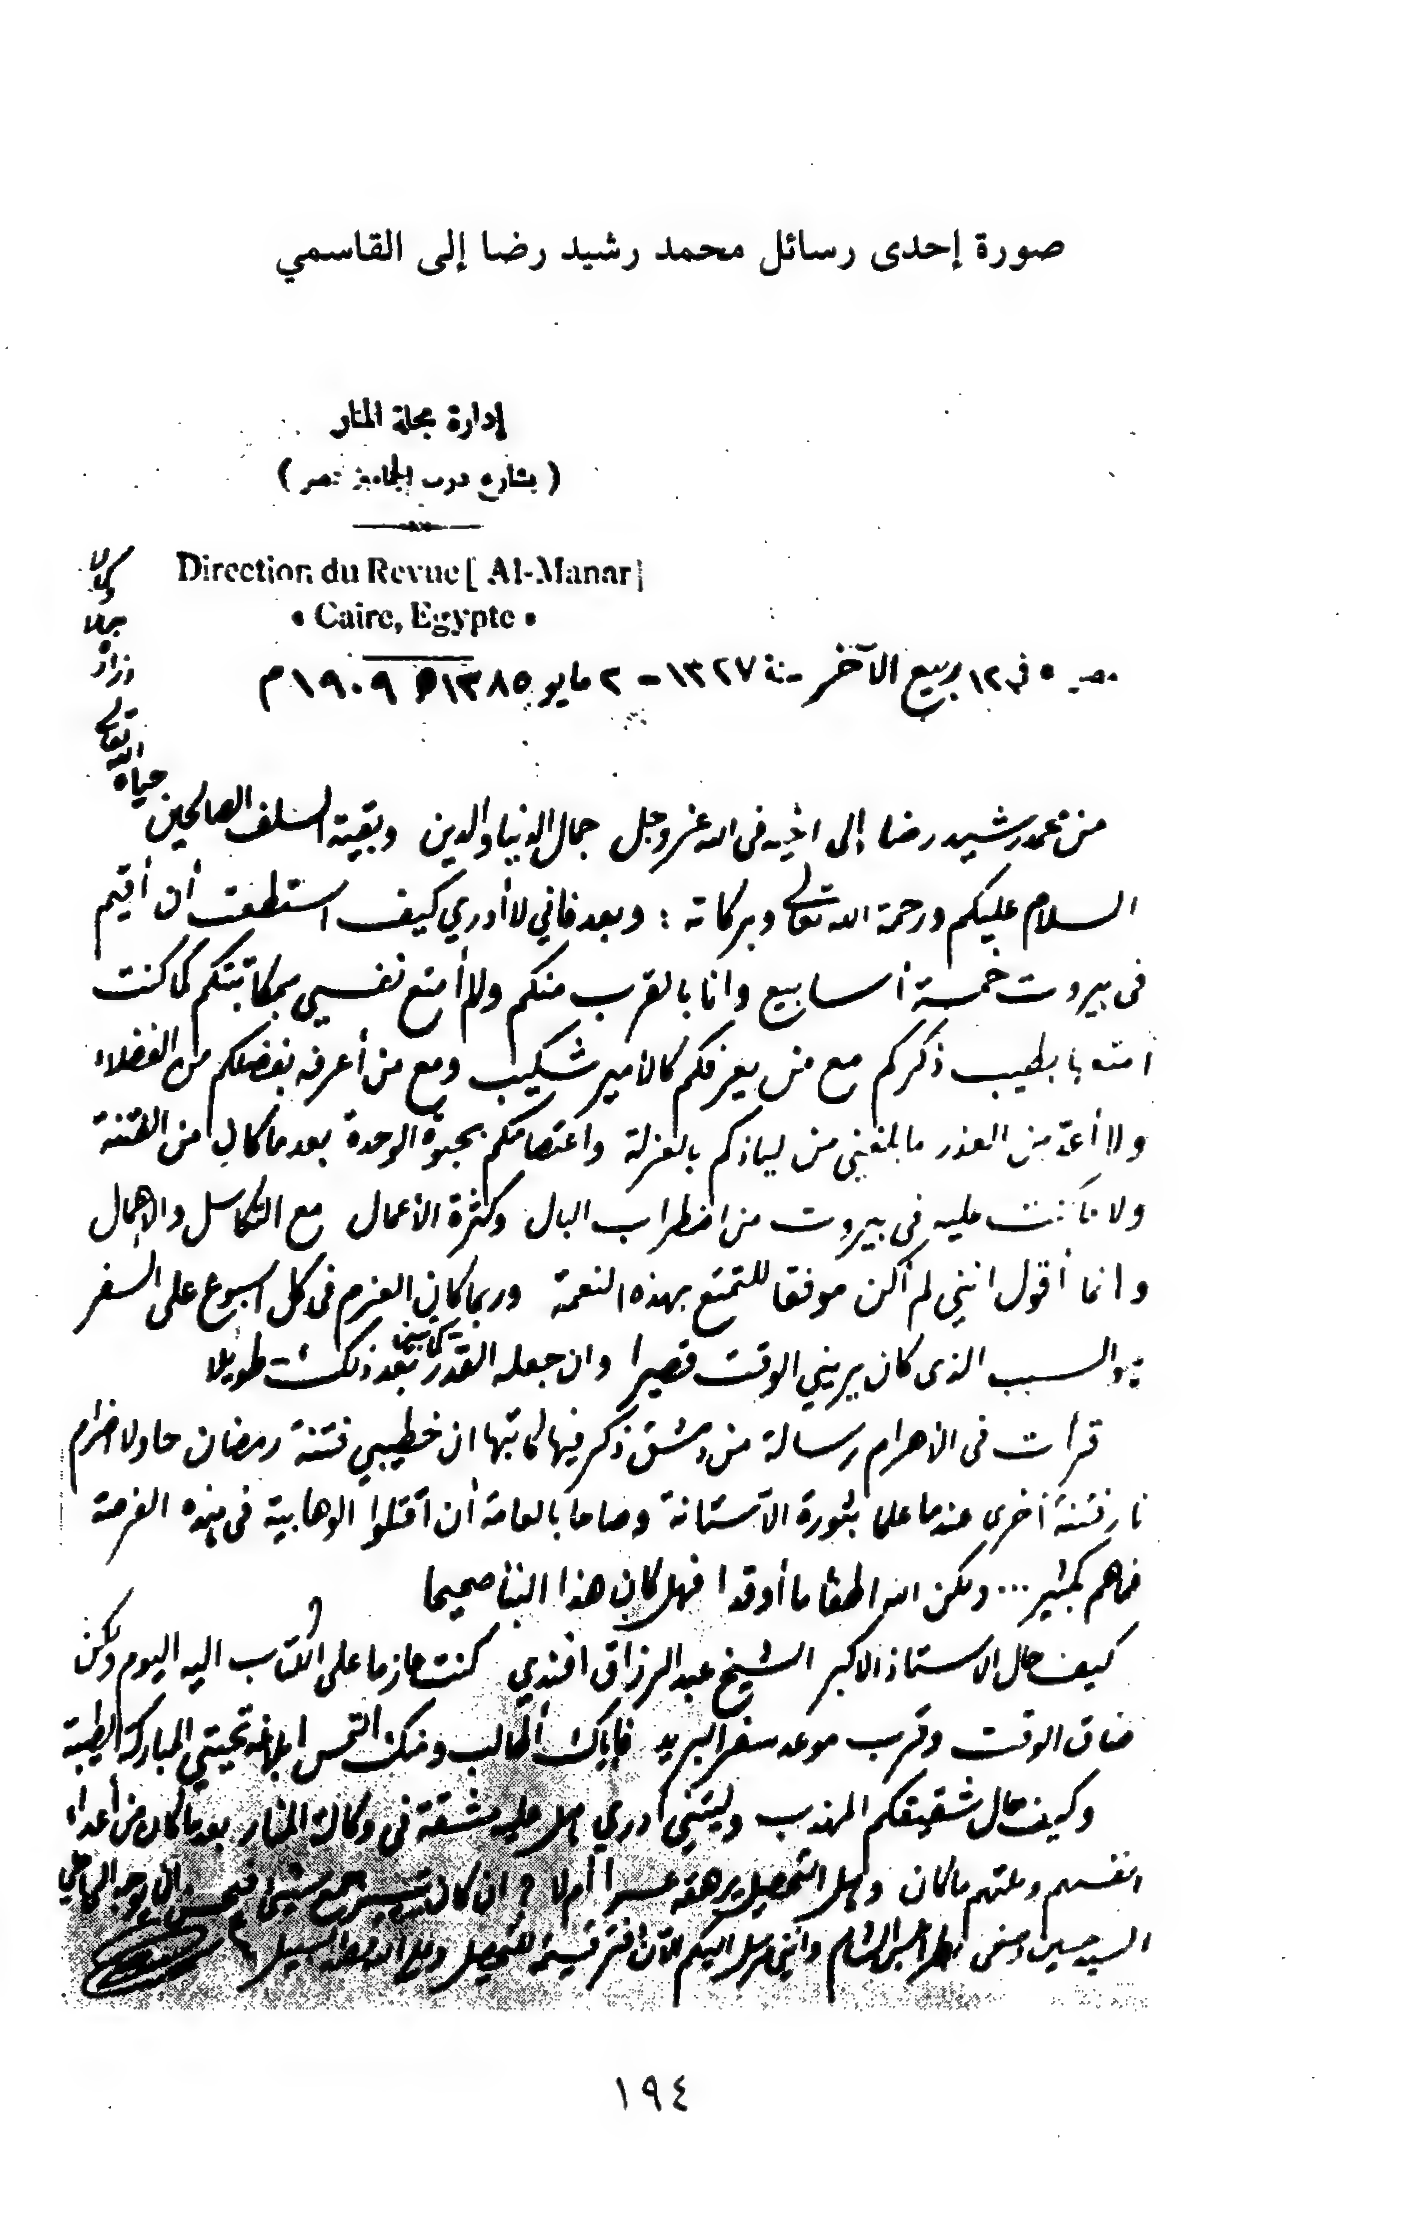 صورة إحدى رسائل محمد رشيد رضا إلى القاسمي
إدارة مجلة المنار
( بشارع درب الجماميز بمصر )
Direction du Revue [ Al-Manar ]
• Caire, Egypte •
مصر في ١٢ ربيع الآخر سنة ١٣٢٧ - ٢ مايو ١٣٨٥ ١٩٠٩ م
من محمد رشيد رضا إلى أخيه في الله عز وجل جمال الدنيا والدين وبقية السلف الصالحين حياه
الله تعالى
وزاده
السلام عليكم ورحمة الله تعالى وبركاته : وبعد فاني لا أدري كيف استطعت أن أقيم
في بيروت خمسة أسابيع وانا بالقرب منكم ولا أمتع نفسي بمكاتبتكم كما كنت
امتعها بطيب ذكركم مع من يعرفكم كالأمير شكيب ومع من أعرفه بفضلكم من الفضلاء
ولا أعدّ من العذر ما بلغني من لياذكم بالعزلة واعتصامكم بحبوة الوحدة بعد ما كان من الفتنة
ولا ما كنت عليه في بيروت من اضطراب البال وكثرة الأعمال مع التكاسل والإهمال
وانما أقول انني لم أكن موفقا للتمتع بهذه النعمة وربما كان العزم في كل اسبوع على السفر
هو السبب الذي كان يريني الوقت قصيرا وان جعله القدر بعد ذلك طويلا
قرأت في الأهرام رسالة من دمشق ذكر فيها كاتبها ان خطيبي فتنة رمضان حاولا اضرام
نار فتنة أخرى عندما علما بثورة الآستانة وصاحا بالعامة أن اقتلوا الوهابية في هذه الفرصة
فما هم بكثير ... ولكن الله اطفأ ما أوقدا فهل كان هذا النبأ صحيحا
كيف حال الاستاذ الاكبر الشيخ عبد الرزاق افندي كنت عازما على الكتاب اليه اليوم ولكن
ضاق الوقت وقرب موعد سفر البريد فإياك أطالب ومنك التمس ابلاغه تحيتي المباركة الطيبة
وكيف حال شقيقكم المهذب وليتني أدري هل عليه مشقة في وكالة المنار بعد ما كان من أعداء
انفسهم وملتهم ما كان وهل التحصيل يرهقه عسرا أم لا
السيد حسين وصفي وانني مرسل اليكم الآن دفتر قسيمة للتحصيل
١٩٤